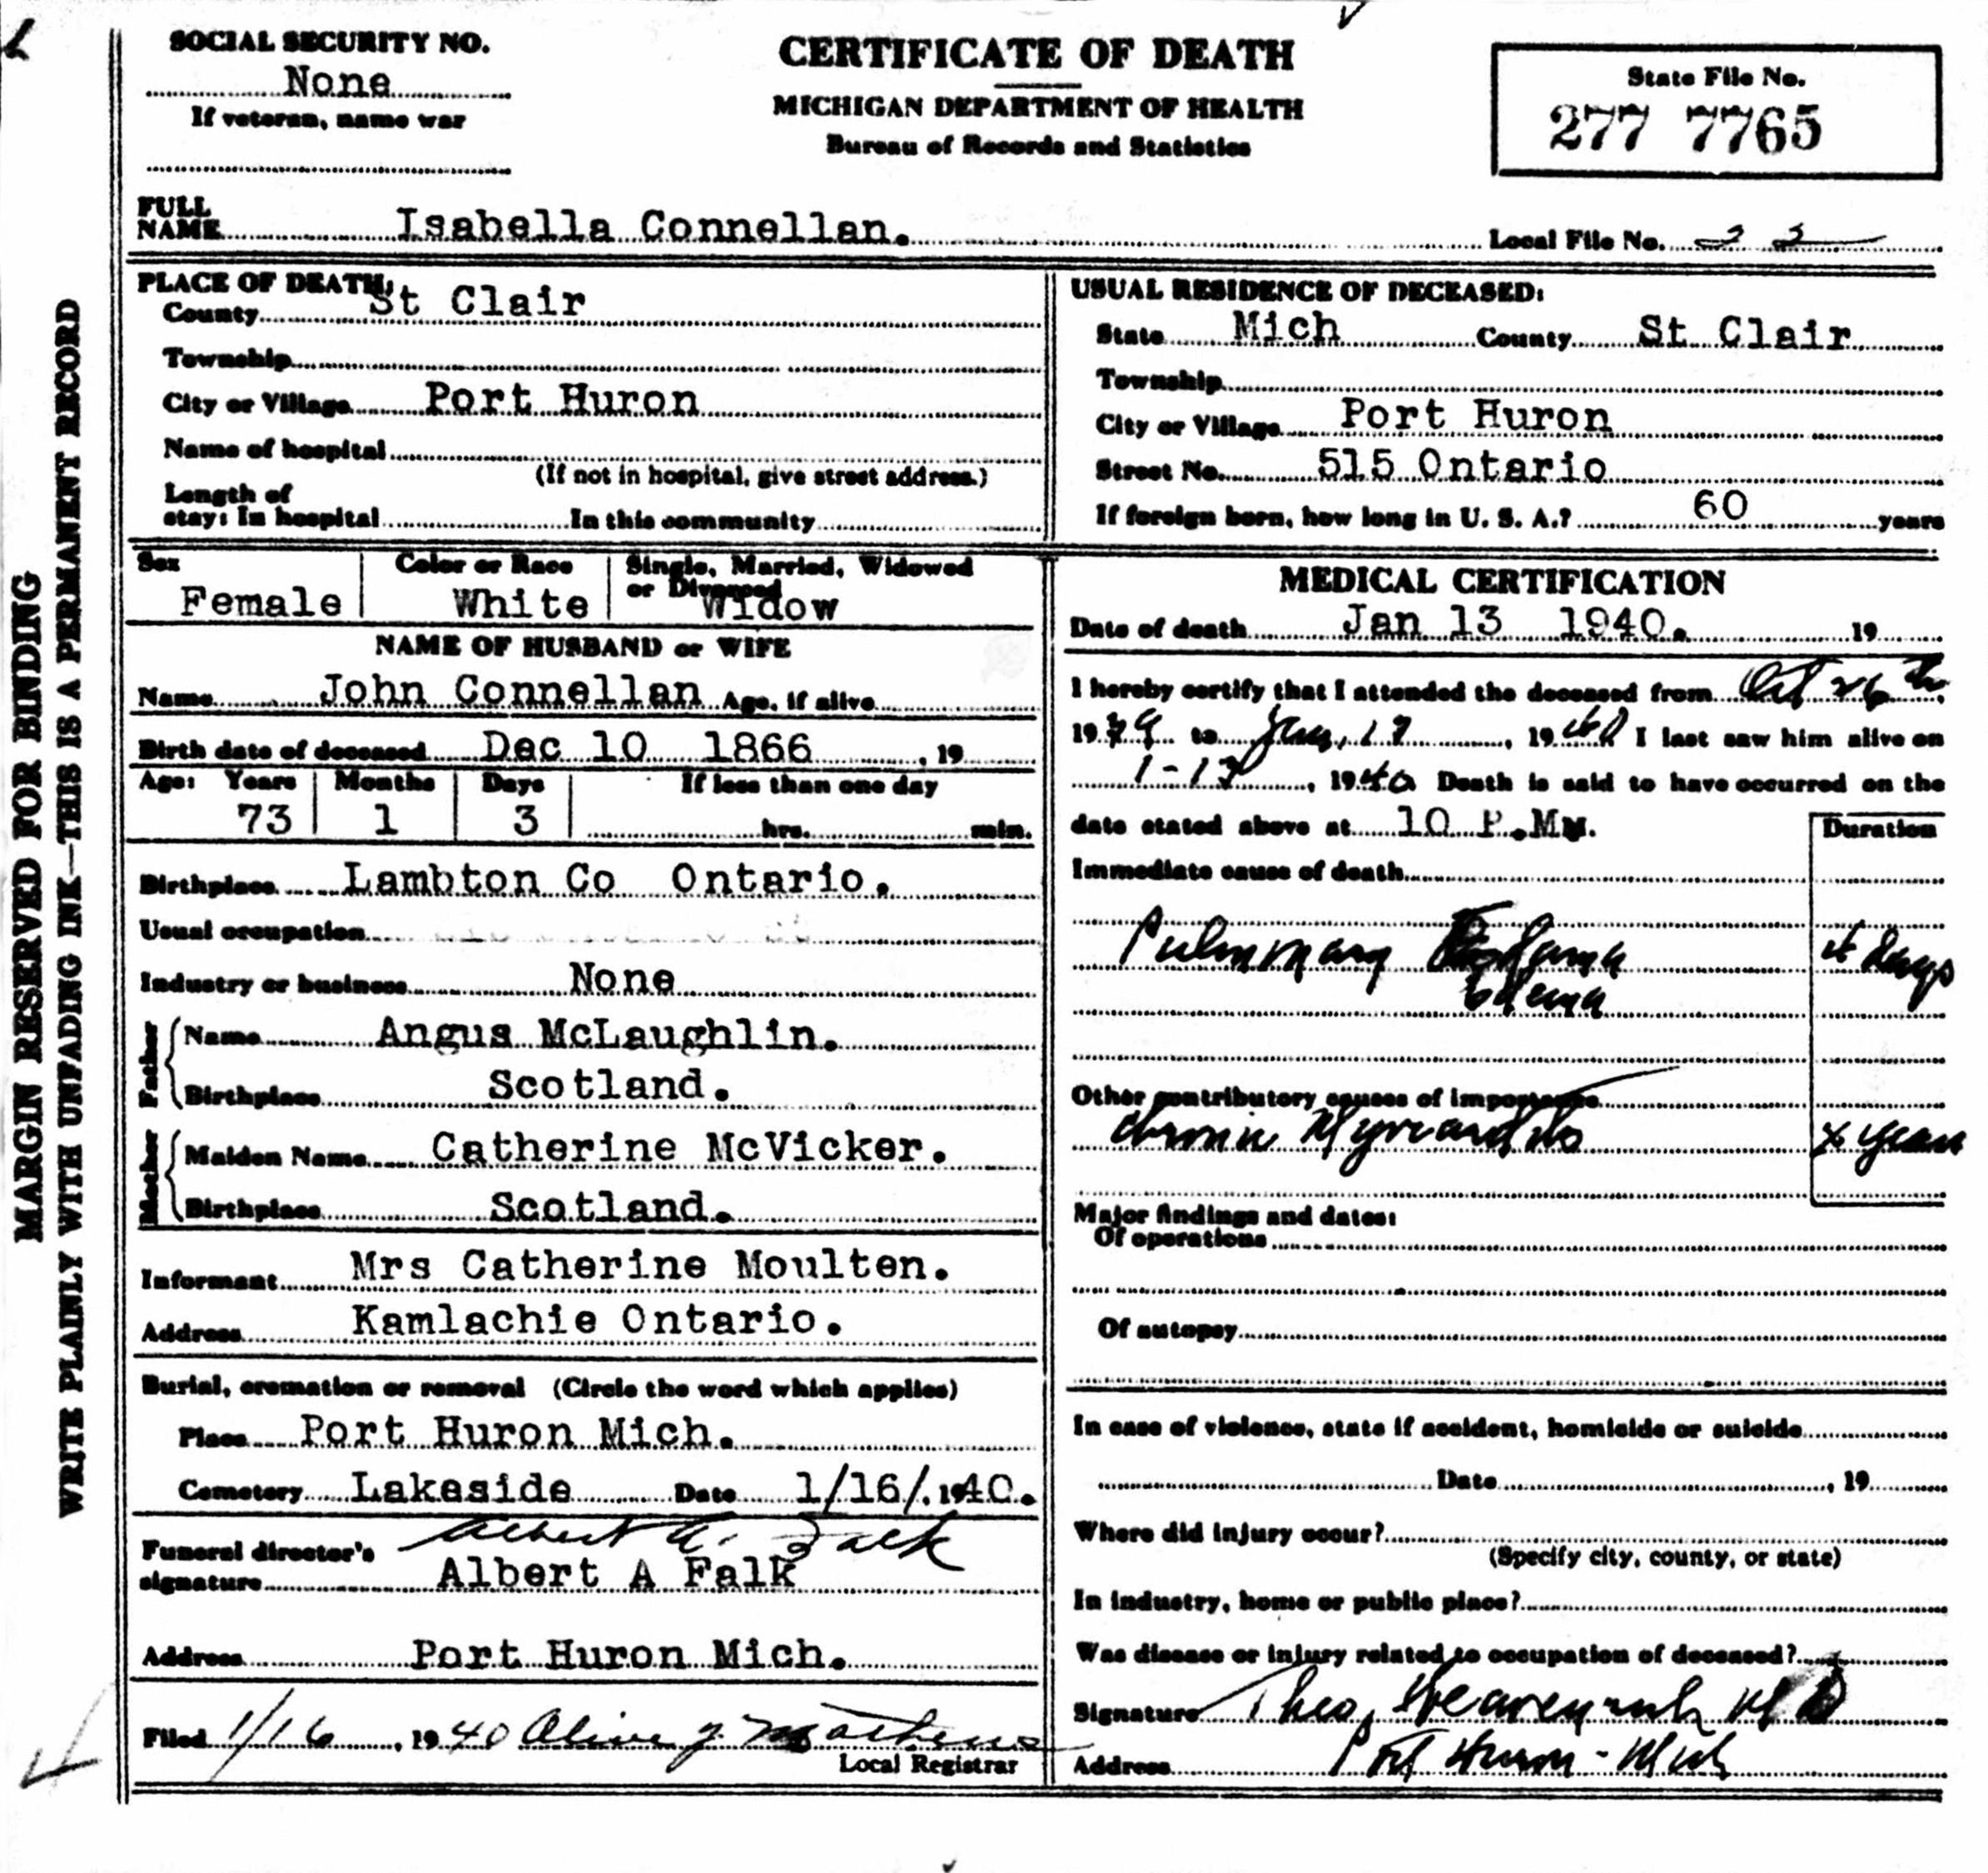 SOCIAL SECURITY NO.
None
If veteran, name war
CERTIFICATE OF DEATH
MICHIGAN DEPARTMENT OF HEALTH
Bureau of Records and Statistics
State File No.
277 7765
FULL NAME Isabella Connellan.
Local File No.
MARGIN RESERVED FOR BINDING
WRITE PLAINLY WITH UNFADING INK—THIS IS A PERMANENT RECORD
PLACE OF DEATH:
County St Clair
Township
City or Village Port Huron
Name of hospital
(If not in hospital, give street address.)
Length of
stay: In hospital In this community
USUAL RESIDENCE OF DECEASED:
State Mich County St Clair
Township
City or Village Port Huron
Street No. 515 Ontario
If foreign born, how long in U. S. A.? 60 years
Sex Color or Race Single, Married, Widowed
or Divorced
Female White Widow
NAME OF HUSBAND or WIFE
Name John Connellan Age, if alive
Birth date of deceased Dec 10 1866 , 19
Age: Years Months Days If less than one day
73 1 3 hrs. min.
Birthplace Lambton Co Ontario.
Usual occupation
Industry or business None
Father
Name Angus McLaughlin.
Birthplace Scotland.
Mother
Maiden Name Catherine McVicker.
Birthplace Scotland.
Informant Mrs Catherine Moulten.
Address Kamlachie Ontario.
Burial, cremation or removal (Circle the word which applies)
Place Port Huron Mich.
Cemetery Lakeside Date 1/16/. 1940.
Albert A. Falk
Funeral director's
signature Albert A Falk
Address Port Huron Mich.
Filed 1/16 , 1940 Olive J. Mathews
Local Registrar
MEDICAL CERTIFICATION
Date of death Jan 13 1940. 19
I hereby certify that I attended the deceased from Oct 26th
1939 to Jan, 13 , 1940 I last saw him alive on
1-13 , 1940 Death is said to have occurred on the
date stated above at 10 P.M.
Duration
Immediate cause of death
Pulmonary Edema 4 days
edema
Other contributory causes of importance
Chronic Myocarditis years
Major findings and dates:
Of operations
Of autopsy
In case of violence, state if accident, homicide or suicide
Date , 19
Where did injury occur?
(Specify city, county, or state)
In industry, home or public place?
Was disease or injury related to occupation of deceased?
Signature Theo. Heavenrich M D
Address Port Huron - Mich